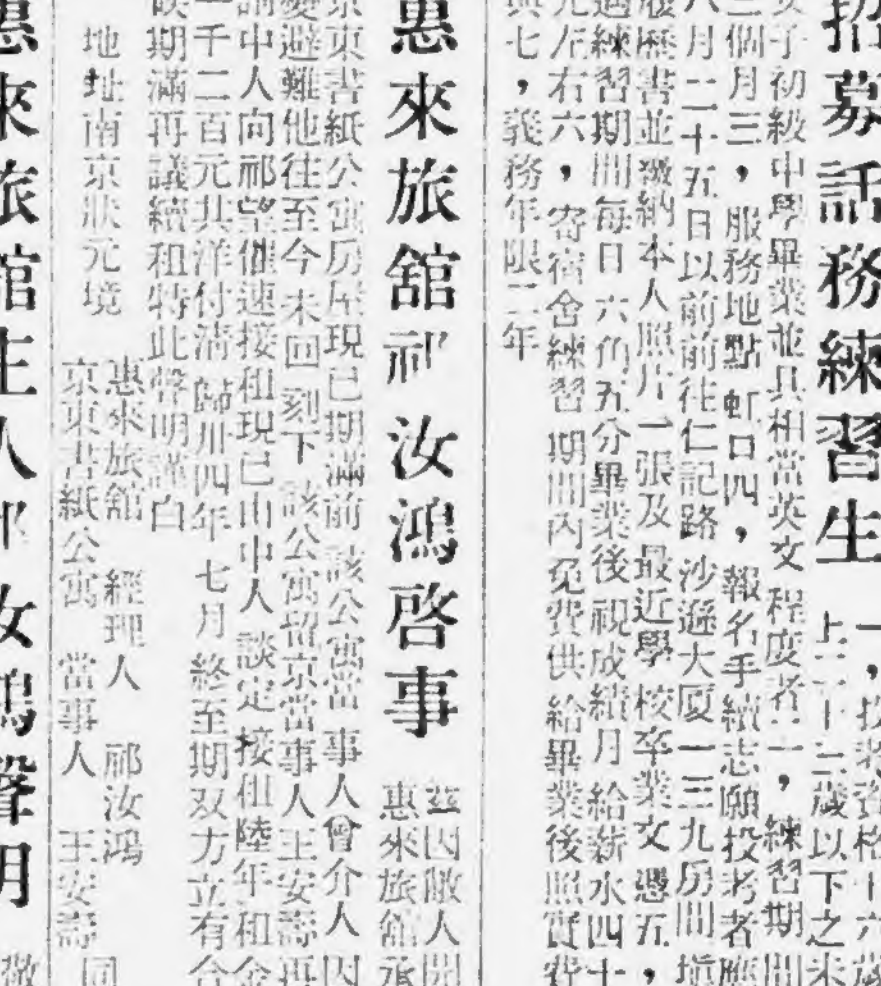 招募話務練習生
一，投考資格十六歲
上二十三歲以下之未
女子初級中學畢業並具相當英文程度者二，練習期間
三個月三，服務地點虹口四，報名手續志願投考者應
八月二十五日以前前往仁記路沙遜大厦一三九房間塡
履歷書並繳納本人照片一張及最近學校卒業文憑五，
過練習期間每日六角五分畢業後視成績月給薪水四十
元左右六，寄宿舍練習期間內免費供給畢業後照實費
與七，義務年限二年
惠來旅舘祁汝鴻啓事
茲因敝人開
惠來旅舘承
京東書紙公寓房屋現已期滿前該公寓當事人曾介人因
變避難他往至今未回刻下該公寓留京當事人王安壽再
請中人向祁望催速接租現已由中人談定接租陸年租金
一千二百元其洋付淸歸卅四年七月終至期双方立有合
候期滿再議續租特此聲明謹白
惠來旅舘 經理人 祁汝鴻
地址南京狀元境
京東書紙公寓 當事人 王安壽 同
惠來旅舘主人祁汝鴻聲明
敝